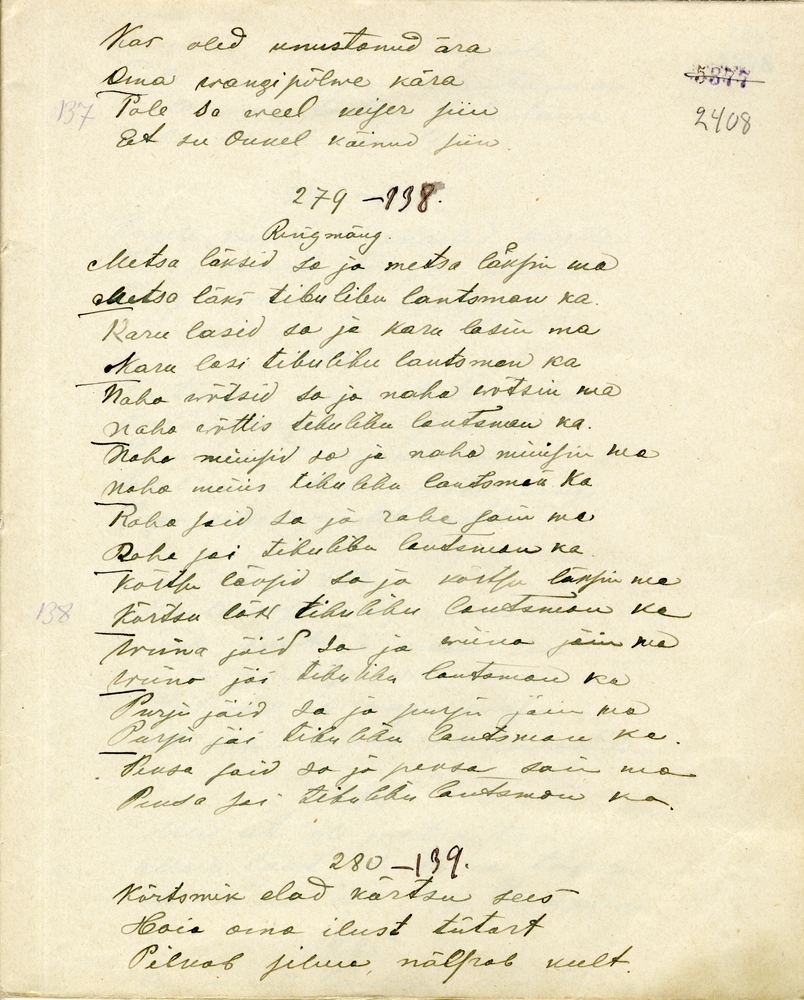 Kas oled unustanud ära
Oma wangipõlwe kära
5377
137 Pole sa weel keiser siin
2408
Et su Onkel käinud siin.
279 – 138.
Ringmäng.
Metsa läksid sa ja metsa läksin ma
Metsa läks tibulibu lantsman ka.
Karu lasid sa ja karu lasin ma
Karu lasi tibulibu lantsman ka
Naha wõtsid sa ja naha wõtsin ma
Naha wõttis tibulibu lantsman ka.
Naha müüsid sa ja naha müüsin ma
Naha müüs tibulibu lantsman ka
Raha said sa ja raha sain ma
Raha sai tibulibu lantsman ka.
Kõrtsu läksid sa ja kõrtsu läksin ma
138 Kõrtsu läks tibulibu lantsman ka
Wiina jõid sa ja wiina jõin ma
Wiina jõi tibulibu lantsman ka
Purju jäid sa ja purju jäin ma
Purju jäi tibulibu lantsman ka.
Peksa said sa ja peksa sain ma
Peksa sai tibulibu lantsman ka.
280 – 139.
Kõrtsmik elad kõrtsu sees
Hoia oma ilust tütart
Pilkab silma, nälpsab keelt.